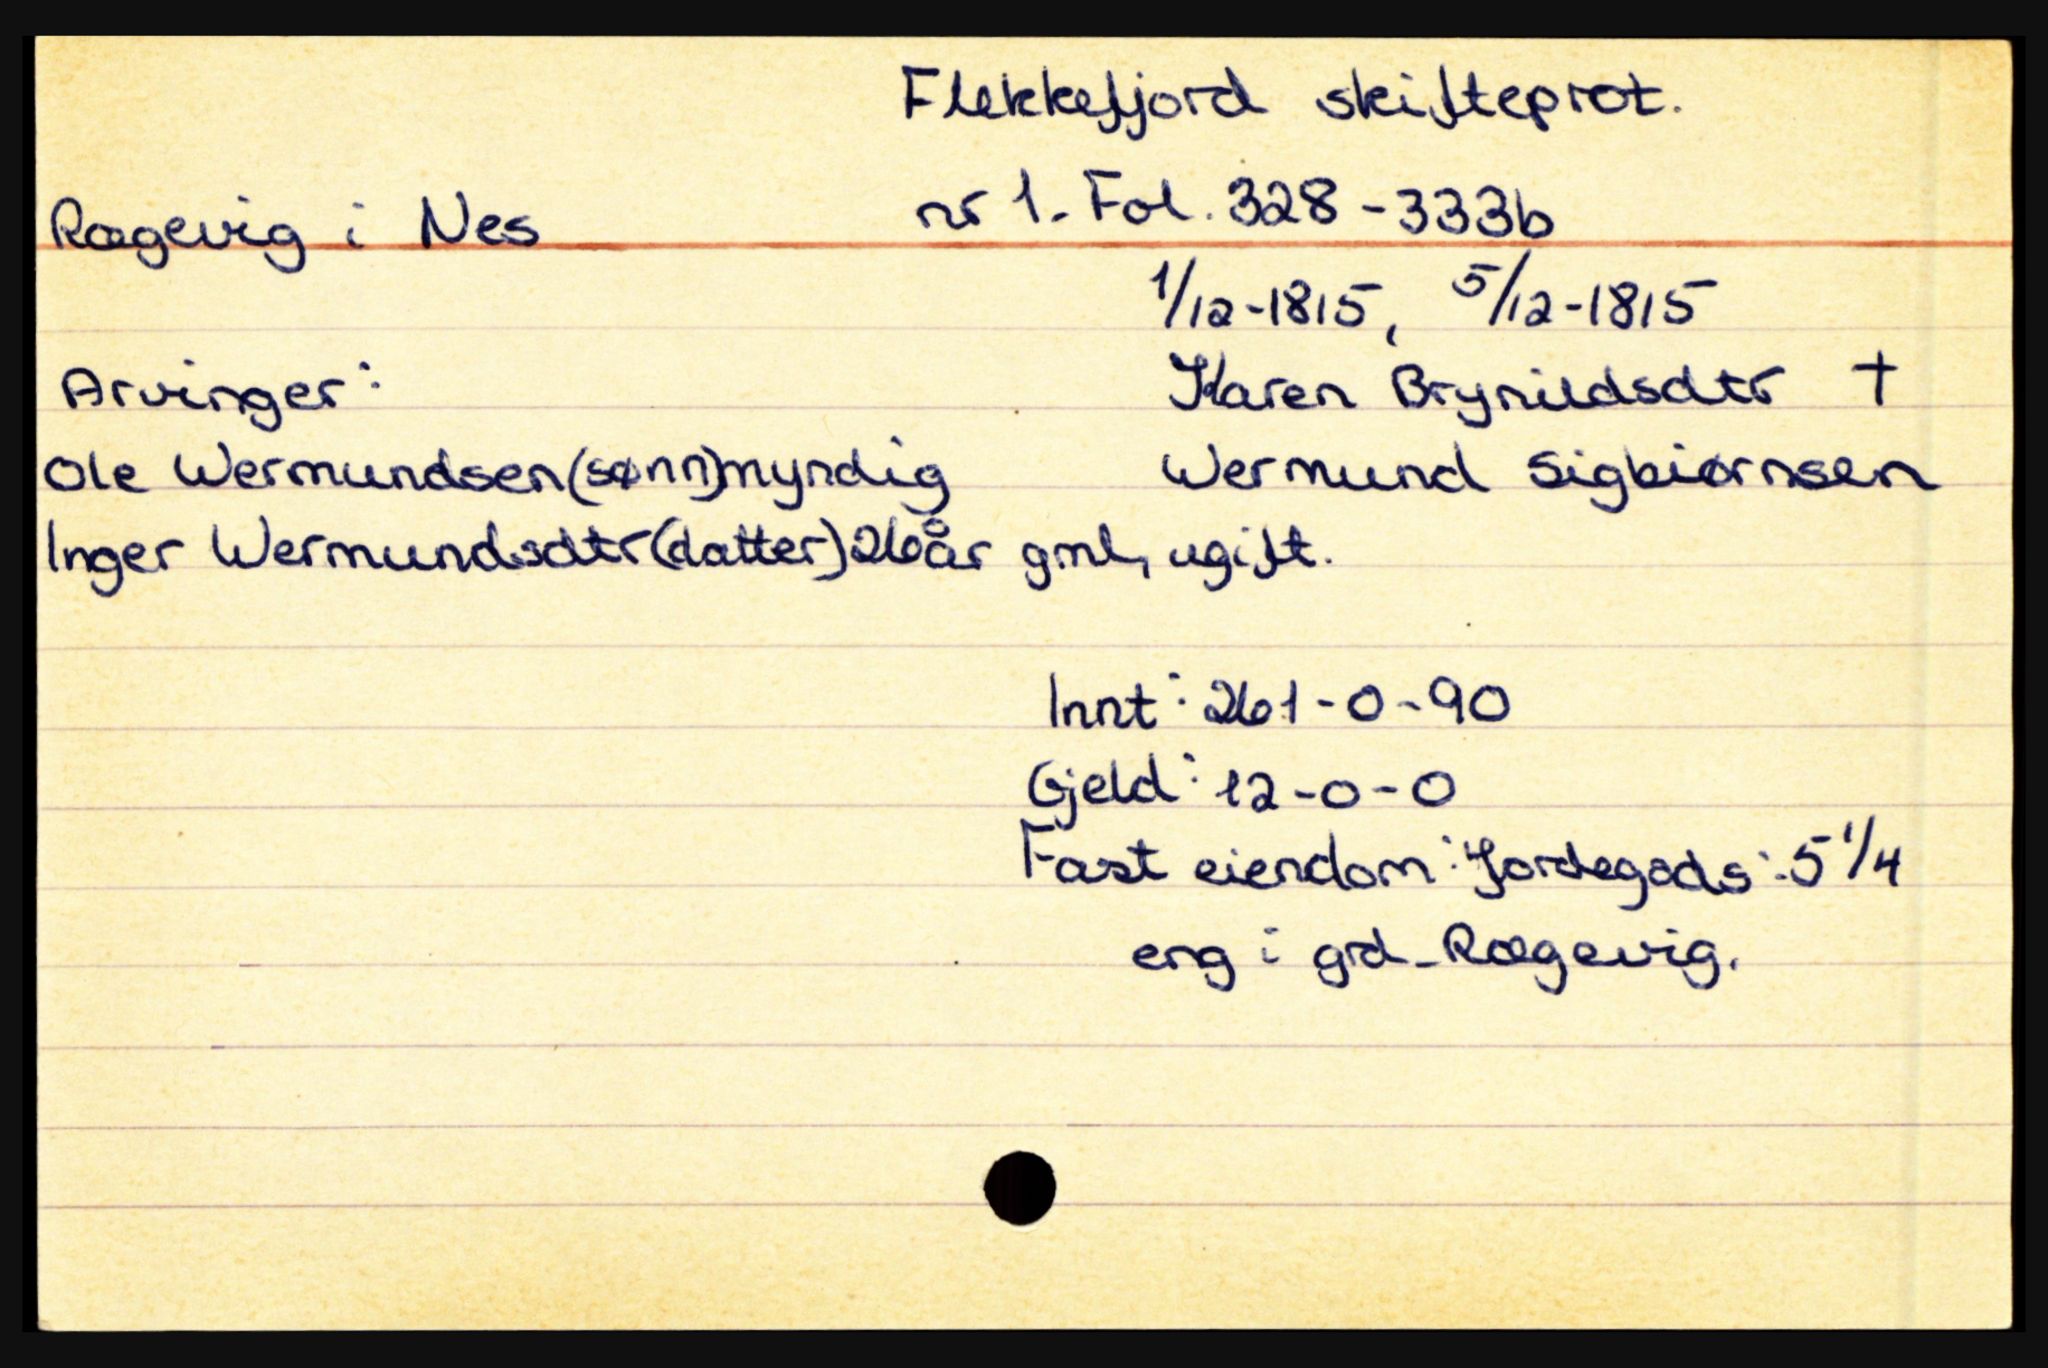 Flekkefjord skifteprot.
Rægevig i Nes
nr 1. Fol. 328-333b
1/12-1815, 5/12-1815
Arvinger:
Karen Brynildsdtr †
Ole Wermundsen(sønn)myndig
Wermund Sigbiørnsen
Inger Wermundsdtr(datter)26år gml, ugift.
Innt: 261-0-90
Gjeld: 12-0-0
Fast eiendom: Jordegods: 5 1/4
eng i grd. Rægevig.